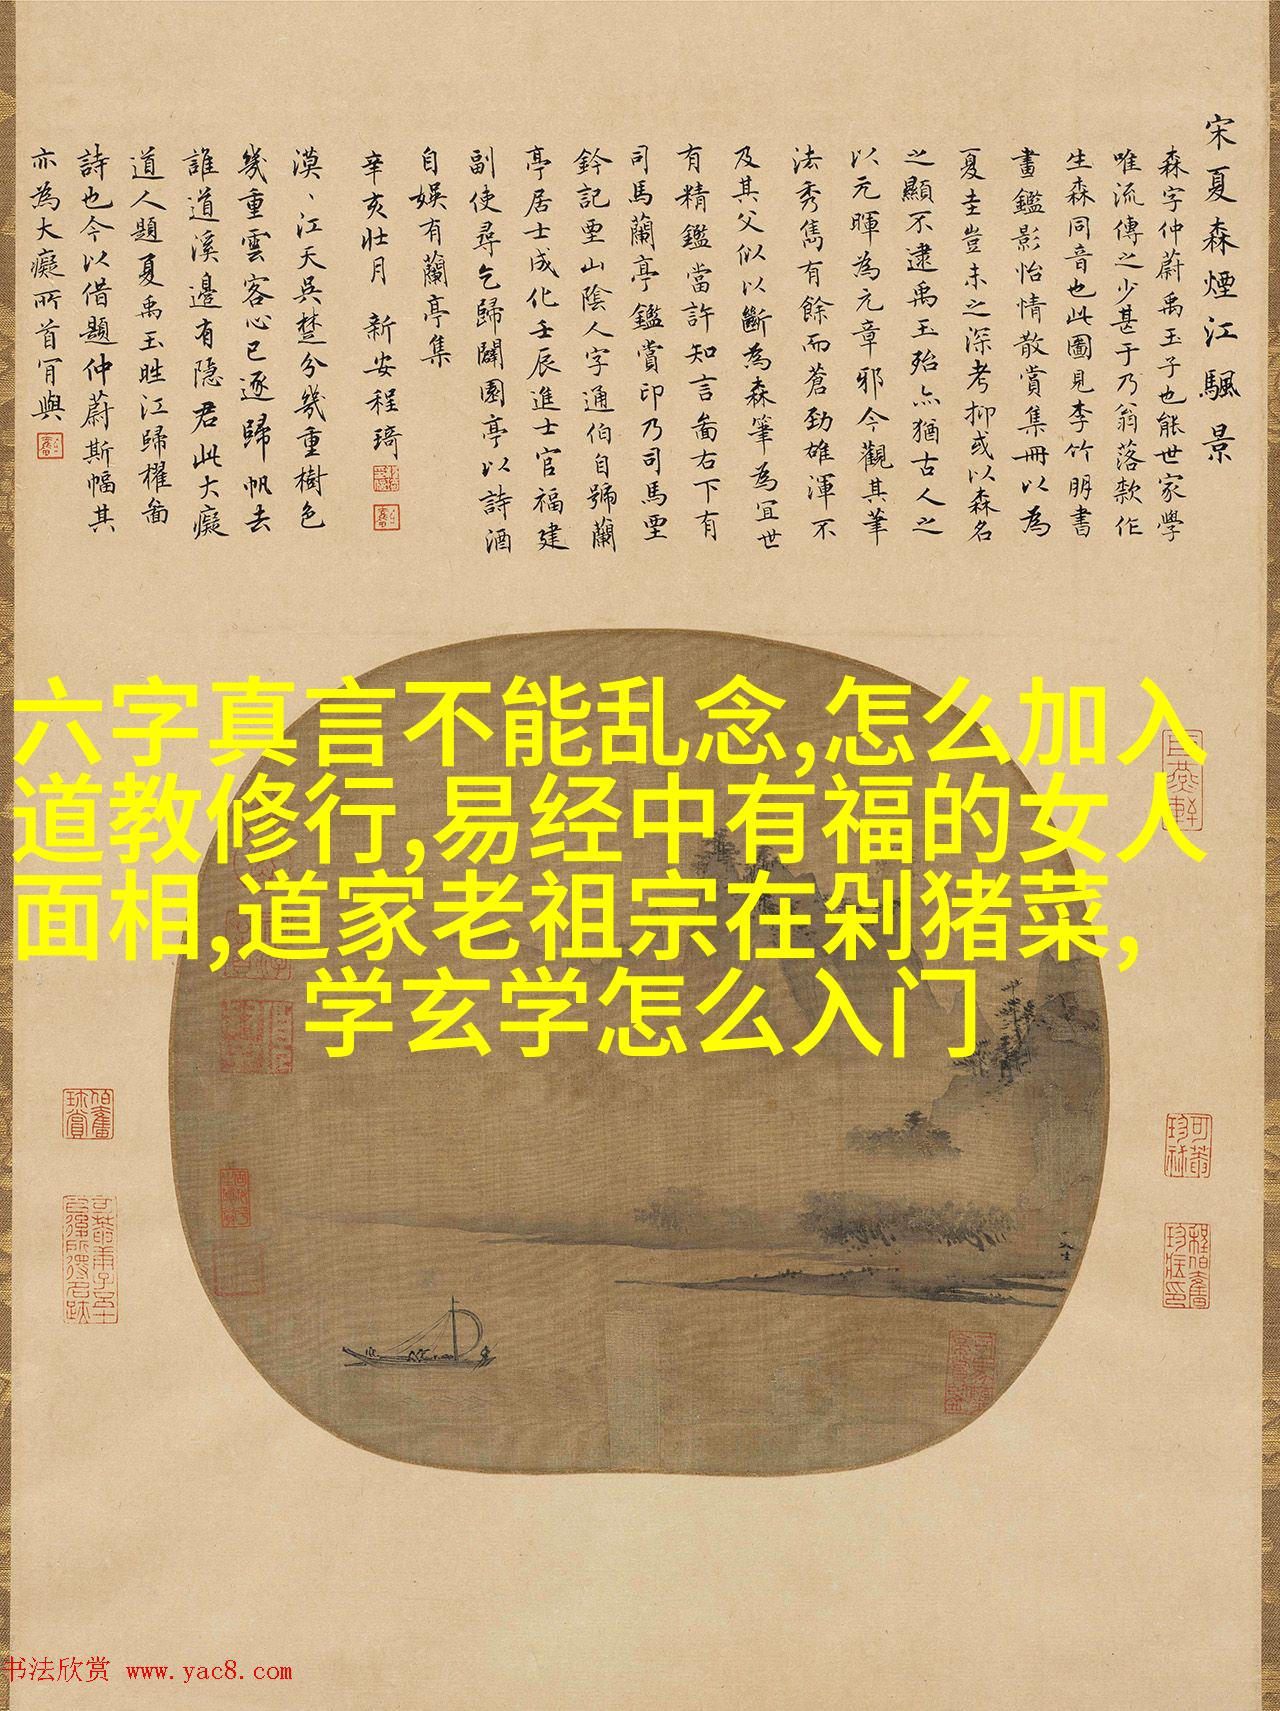 宋夏森煙江颿景
森字仲蔚禹玉子也能世家學
唯流傳之少甚于乃翁落款作
生森同音也此圖見李竹朋書
畫鑑影怡情散賞集冊以為
夏圭豈未之深考抑或以森名
之顯不逮禹玉殆亦猶古人之
以元暉為元章邪今觀其筆
法秀雋有餘而蒼勁雄渾不
及其父似以斷為森筆為宜世
有精鑑當許知言畫右下有
司馬蘭亭鑑賞印乃司馬垔
鈐記垔山陰人字通伯自號蘭
亭居士成化壬辰進士官福建
副使尋乞歸闢園亭以詩酒
自娛有蘭亭集
辛亥壯月 新安程琦
漠、江天吳楚分幾重樹色
幾重雲客心已逐歸帆去
誰道溪邊有隱君此大癡
道人題夏禹玉晴江歸櫂畫
詩也今以借題仲蔚斯幅其
亦為大癡所首肯與
六字真言不能乱念,怎么加入
道教修行,易经中有福的女人
面相,道家老祖宗在剁猪菜,
学玄学怎么入门
书法欣赏 www.yac8.com